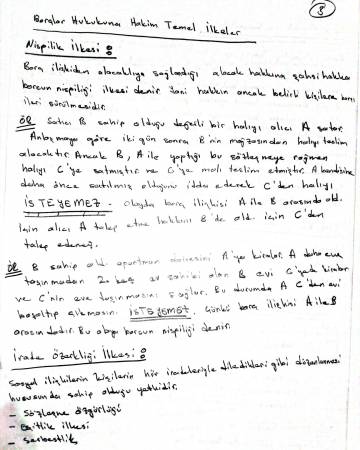 8
Borçlar Hukukuna Hakim Temel İlkeler
Nispilik İlkesi :
Borç ilişkiden alacaklıya sağladığı alacak hakkına şahsi hakka
borcun nispiliği ilkesi denir. Yani hakkın ancak belirli kişilere karşı
ileri sürülmesidir.
ÖR Satıcı B sahip olduğu değerli bir halıyı alıcı A satar.
Anlaşmaya göre iki gün sonra B'nin mağazasından halıyı teslim
alacaktır. Ancak B, A ile yaptığı bu sözleşmeye rağmen
halıyı C'ye satmıştır ve C'ye malı teslim etmiştir. A kendisine
daha önce satılmış olduğunu iddia ederek C'den halıyı
İSTEYEMEZ - Olayda borç ilişkisi A ile B arasında old.
için alıcı A talep etme hakkını B'de old. için C'den
talep edemez.
ÖR B sahip old. apartman dairesini A'ya kiralar. A daha eve
taşınmadan ev sahibi olan B evi C'ye de kiralar
ve C'nin eve taşınmasını sağlar. Bu durumda A C'den evi
boşaltıp çıkmasını İSTEYEMEZ. Çünkü borç ilişkisi A ile B
arasındadır. Bu olaya borcun nispiliği denir.
İrade Özerkliği İlkesi :
Sosyal ilişkilerin kişilerin hür iradeleriyle diledikleri gibi düzenlenmesi
hususunda sahip olduğu yetkidir.
- Sözleşme özgürlüğü
- Eşitlik ilkesi
- Serbestlik